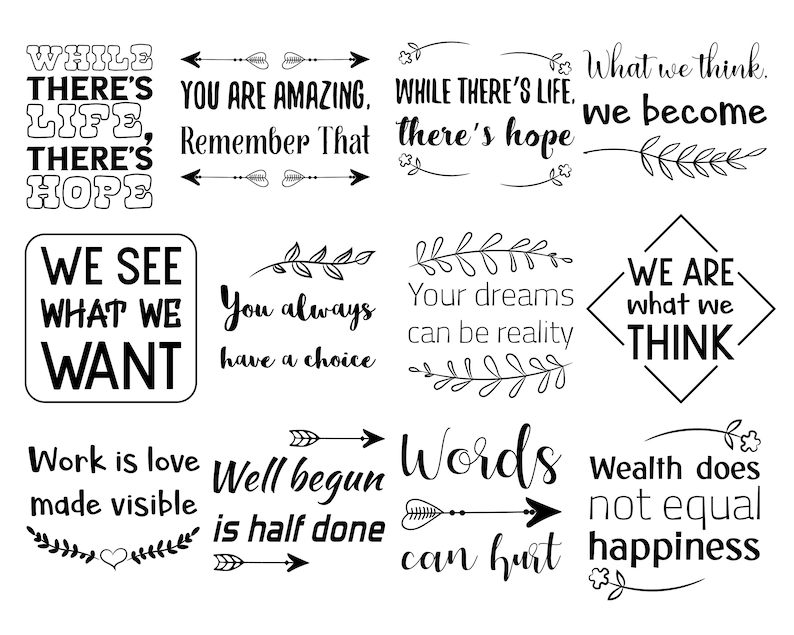 WHILE
THERE'S
LIFE,
THERE'S
HOPE
YOU ARE AMAZING,
Remember That
WHILE THERE'S LIFE,
there's hope
What we think,
we become
WE SEE
WHAT WE
WANT
You always
have a choice
Your dreams
can be reality
WE ARE
what we
THINK
Work is love
made visible
Well begun
is half done
Words
can hurt
Wealth does
not equal
happiness